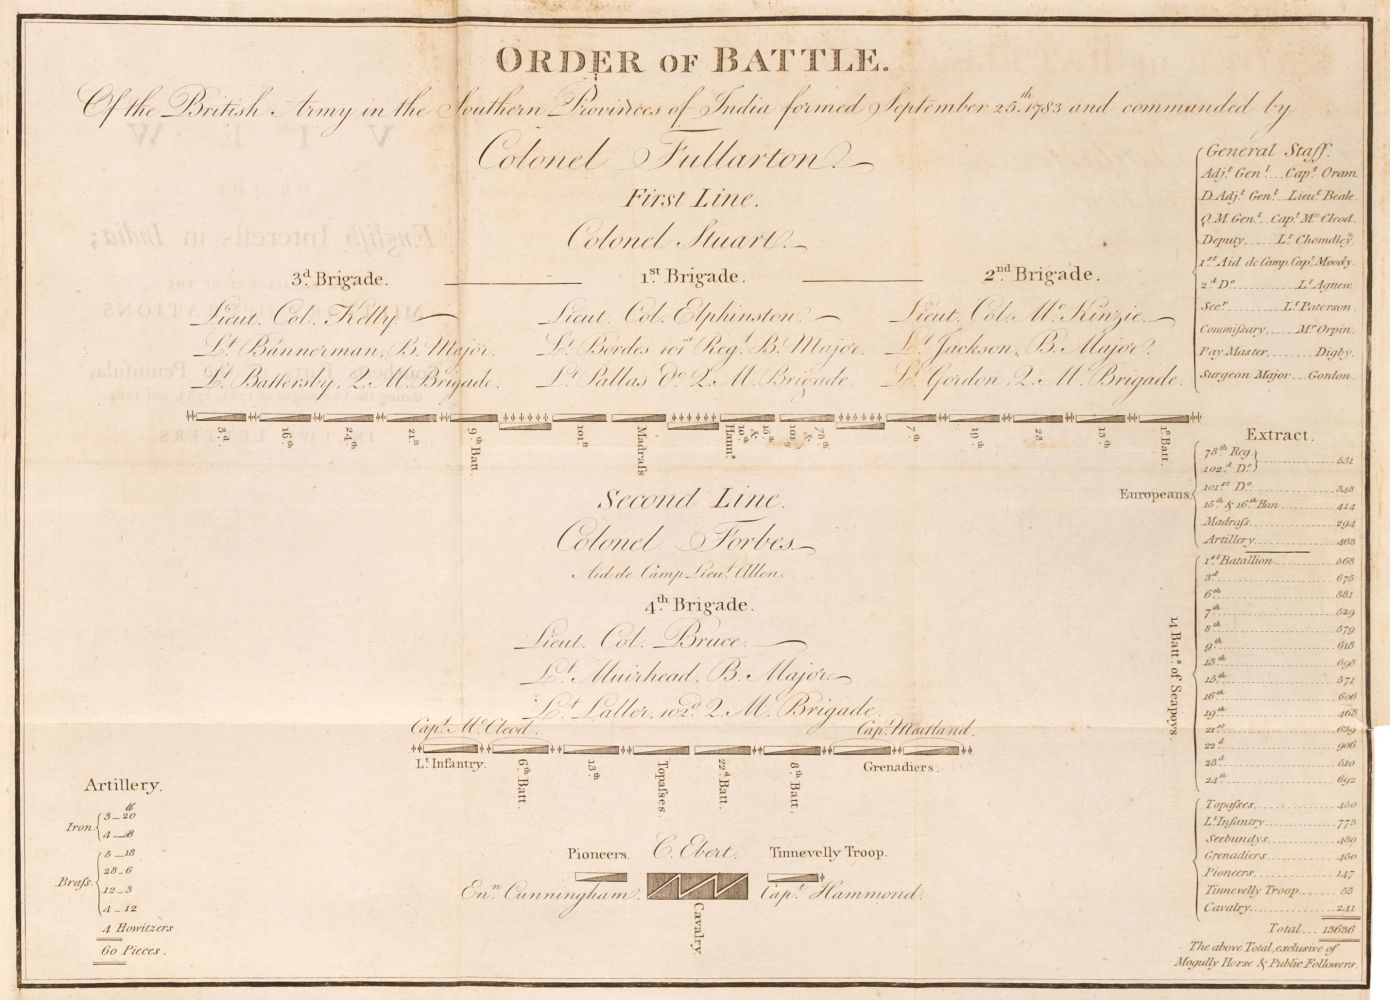 ORDER OF BATTLE.
Of the British Army in the Southern Provinces of India formed September 25.th 1783 and commanded by
Colonel Fullarton.
First Line.
Colonel Stuart.
3.d Brigade.
1.st Brigade.
2.nd Brigade.
Lieut. Col. Kelly.
Lieut. Col. Elphinston
Lieut. Col. Mc. Kinzie
L.t Bannerman, B. Major.
L.t Bordes 101st Reg.t B. Major.
L.t Jackson, B. Major.
L.t Battersby, Q. M. Brigade.
L.t Pallas do. Q. M. Brigade.
L.t Gordon, Q. M. Brigade.
3.d
16.th
24.th
21.st
9.th Batt.
101.st
Madraſs
15.th & 16.th Hann.s
78.th &
7.th
19.th
23
13.th
1.st Batt.
General Staff.
Adj.t Gen.l Cap.t Oram.
D. Adj.t Gen.l Lieu.t Beale.
Q. M. Gen.l Cap.t Mc. Cleod.
Deputy L.t Chomdley.
1.st Aid de Camp. Cap.t Moody.
2.d Do. L.t Agnew.
Sec.r L.t Paterson.
Commiſsary. Mr. Orpin.
Pay Master. Digby.
Surgeon Major Gordon.
Second Line.
Colonel Forbes
Aid de Camp Lieu.t Allen.
4.th Brigade.
Lieut. Col. Bruce.
L.t Muirhead, B. Major.
L.t Laller, 102.d Q. M. Brigade.
Cap.t Mc. Cleod.
Cap.t Maitland.
L.t Infantry.
6.th Batt.
13.th
Topaſses.
22.d Batt.
8.th Batt.
Grenadiers.
Pioneers.
C. Ebert.
Tinnevelly Troop.
En.n Cunningham.
Cap.t Hammond.
Cavalry.
Artillery.
lb
Iron. 3 _ 20
4 _ 8
Braſs. 5 _ 18
28 _ 6
12 _ 3
4 _ 12
4 Howitzers
60 Pieces.
Extract.
Europeans.
78.th Reg.
102.d Do. 531
101.st Do. 343
15.th & 16.th Han 414
Madraſs 294
Artillery 463
14 Batt.s of Seapoys.
1.st Batallion 563
3.d 675
6.th 531
7.th 529
8.th 579
9.th 613
13.th 693
15.th 571
16.th 606
19.th 463
21.st 639
22.d 906
23.d 510
24.th 692
Topaſses 450
L.t Infantry 773
Seebundys 480
Grenadiers 450
Pioneers 147
Tinnevelly Troop 53
Cavalry 241
Total 13636
The above Total, exclusive of
Mogully Horse & Public Followers.